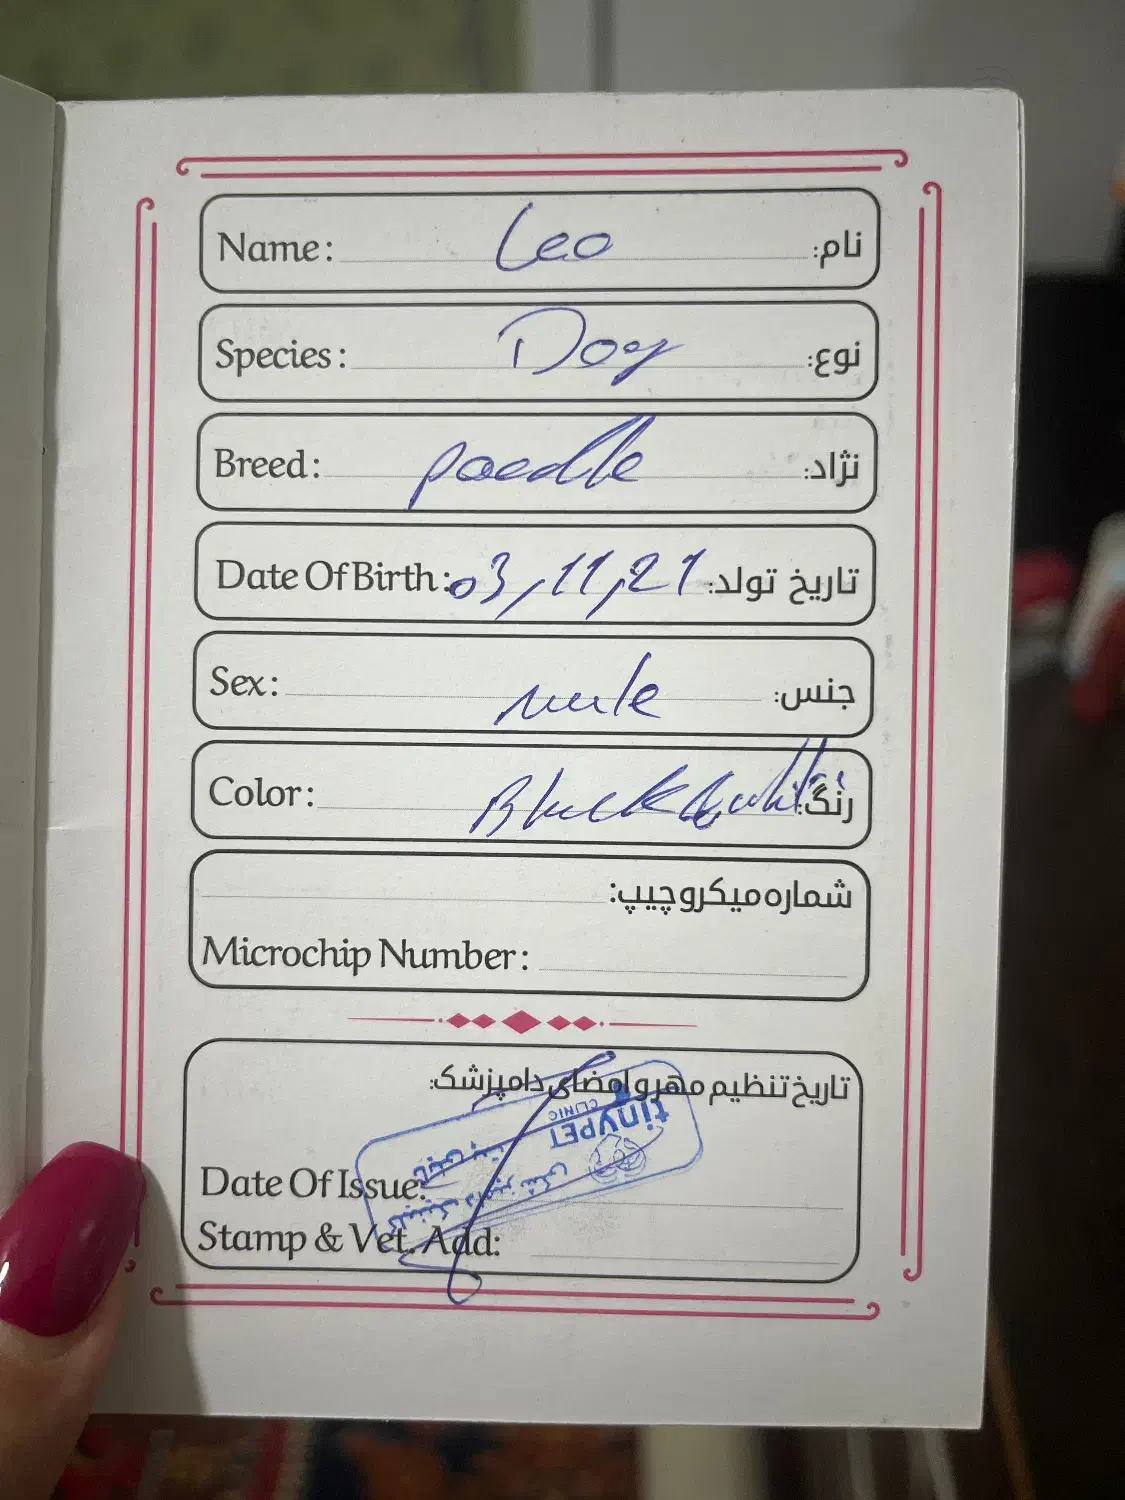 Name: Leo نام:
Species: Dog نوع:
Breed: poodle نژاد:
Date Of Birth: 03,11,21 تاریخ تولد:
Sex: male جنس:
Color: Black رنگ:
شماره میکروچیپ:
Microchip Number:
تاریخ تنظیم مهر و امضای دامپزشک:
tinyPET
CLINIC
کلینیک دامپزشکی
تاینی پت
Date Of Issue:
Stamp & Vet. Add: